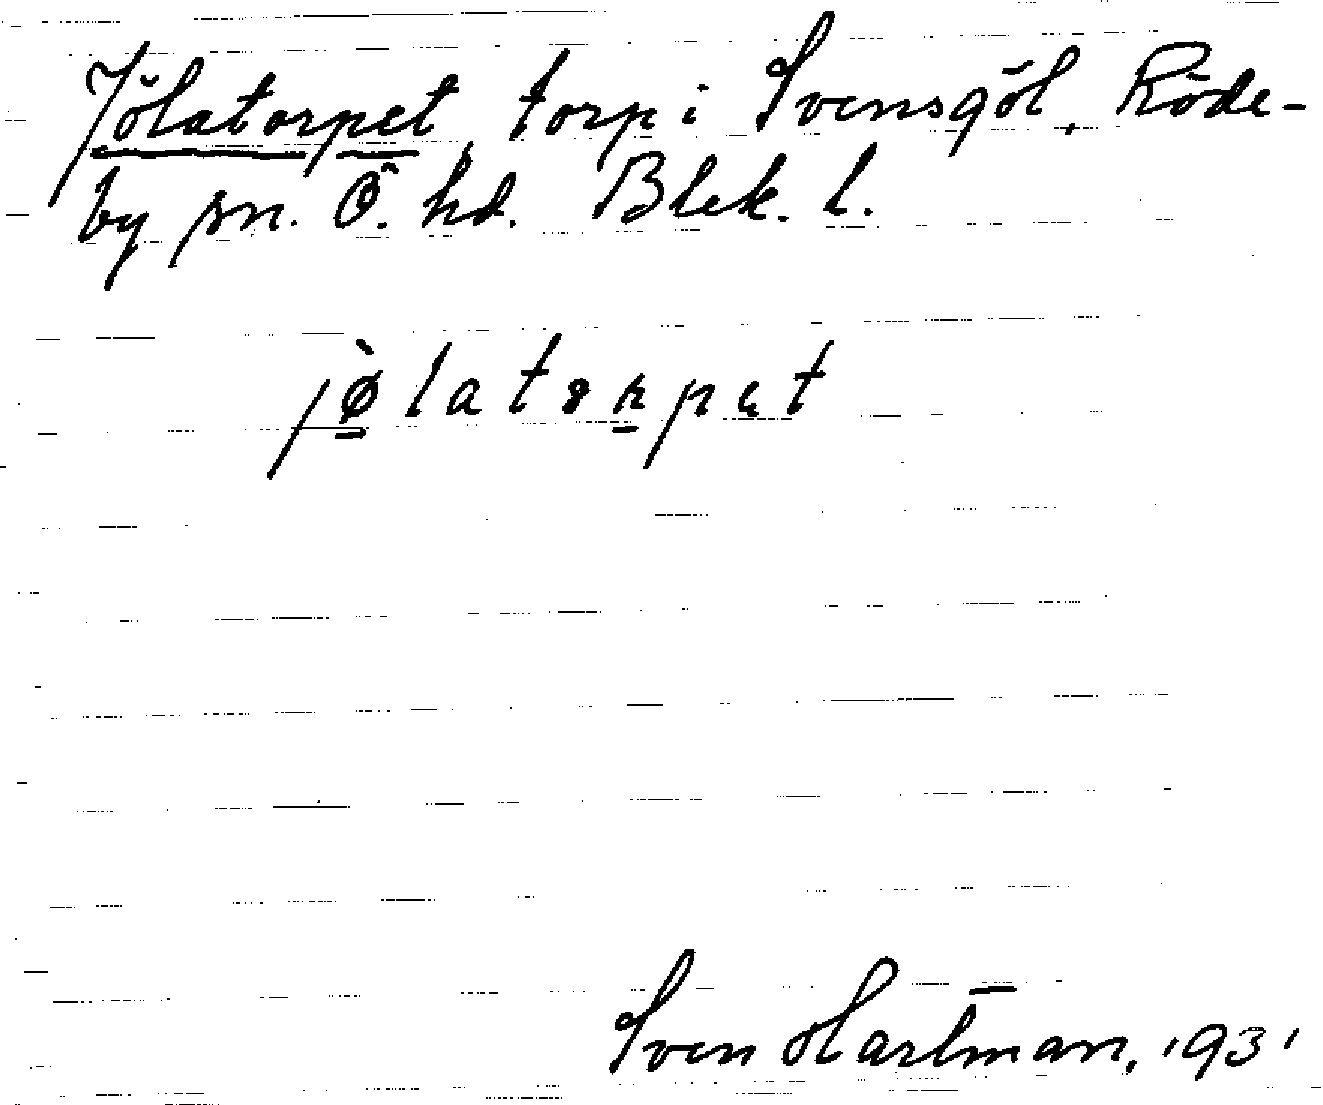 Jölatorpet, torp i Svensgöl, Röde-
by sn. Ö. hd. Blek. l.
jø̀latorpet
Sven Hartman, 1931